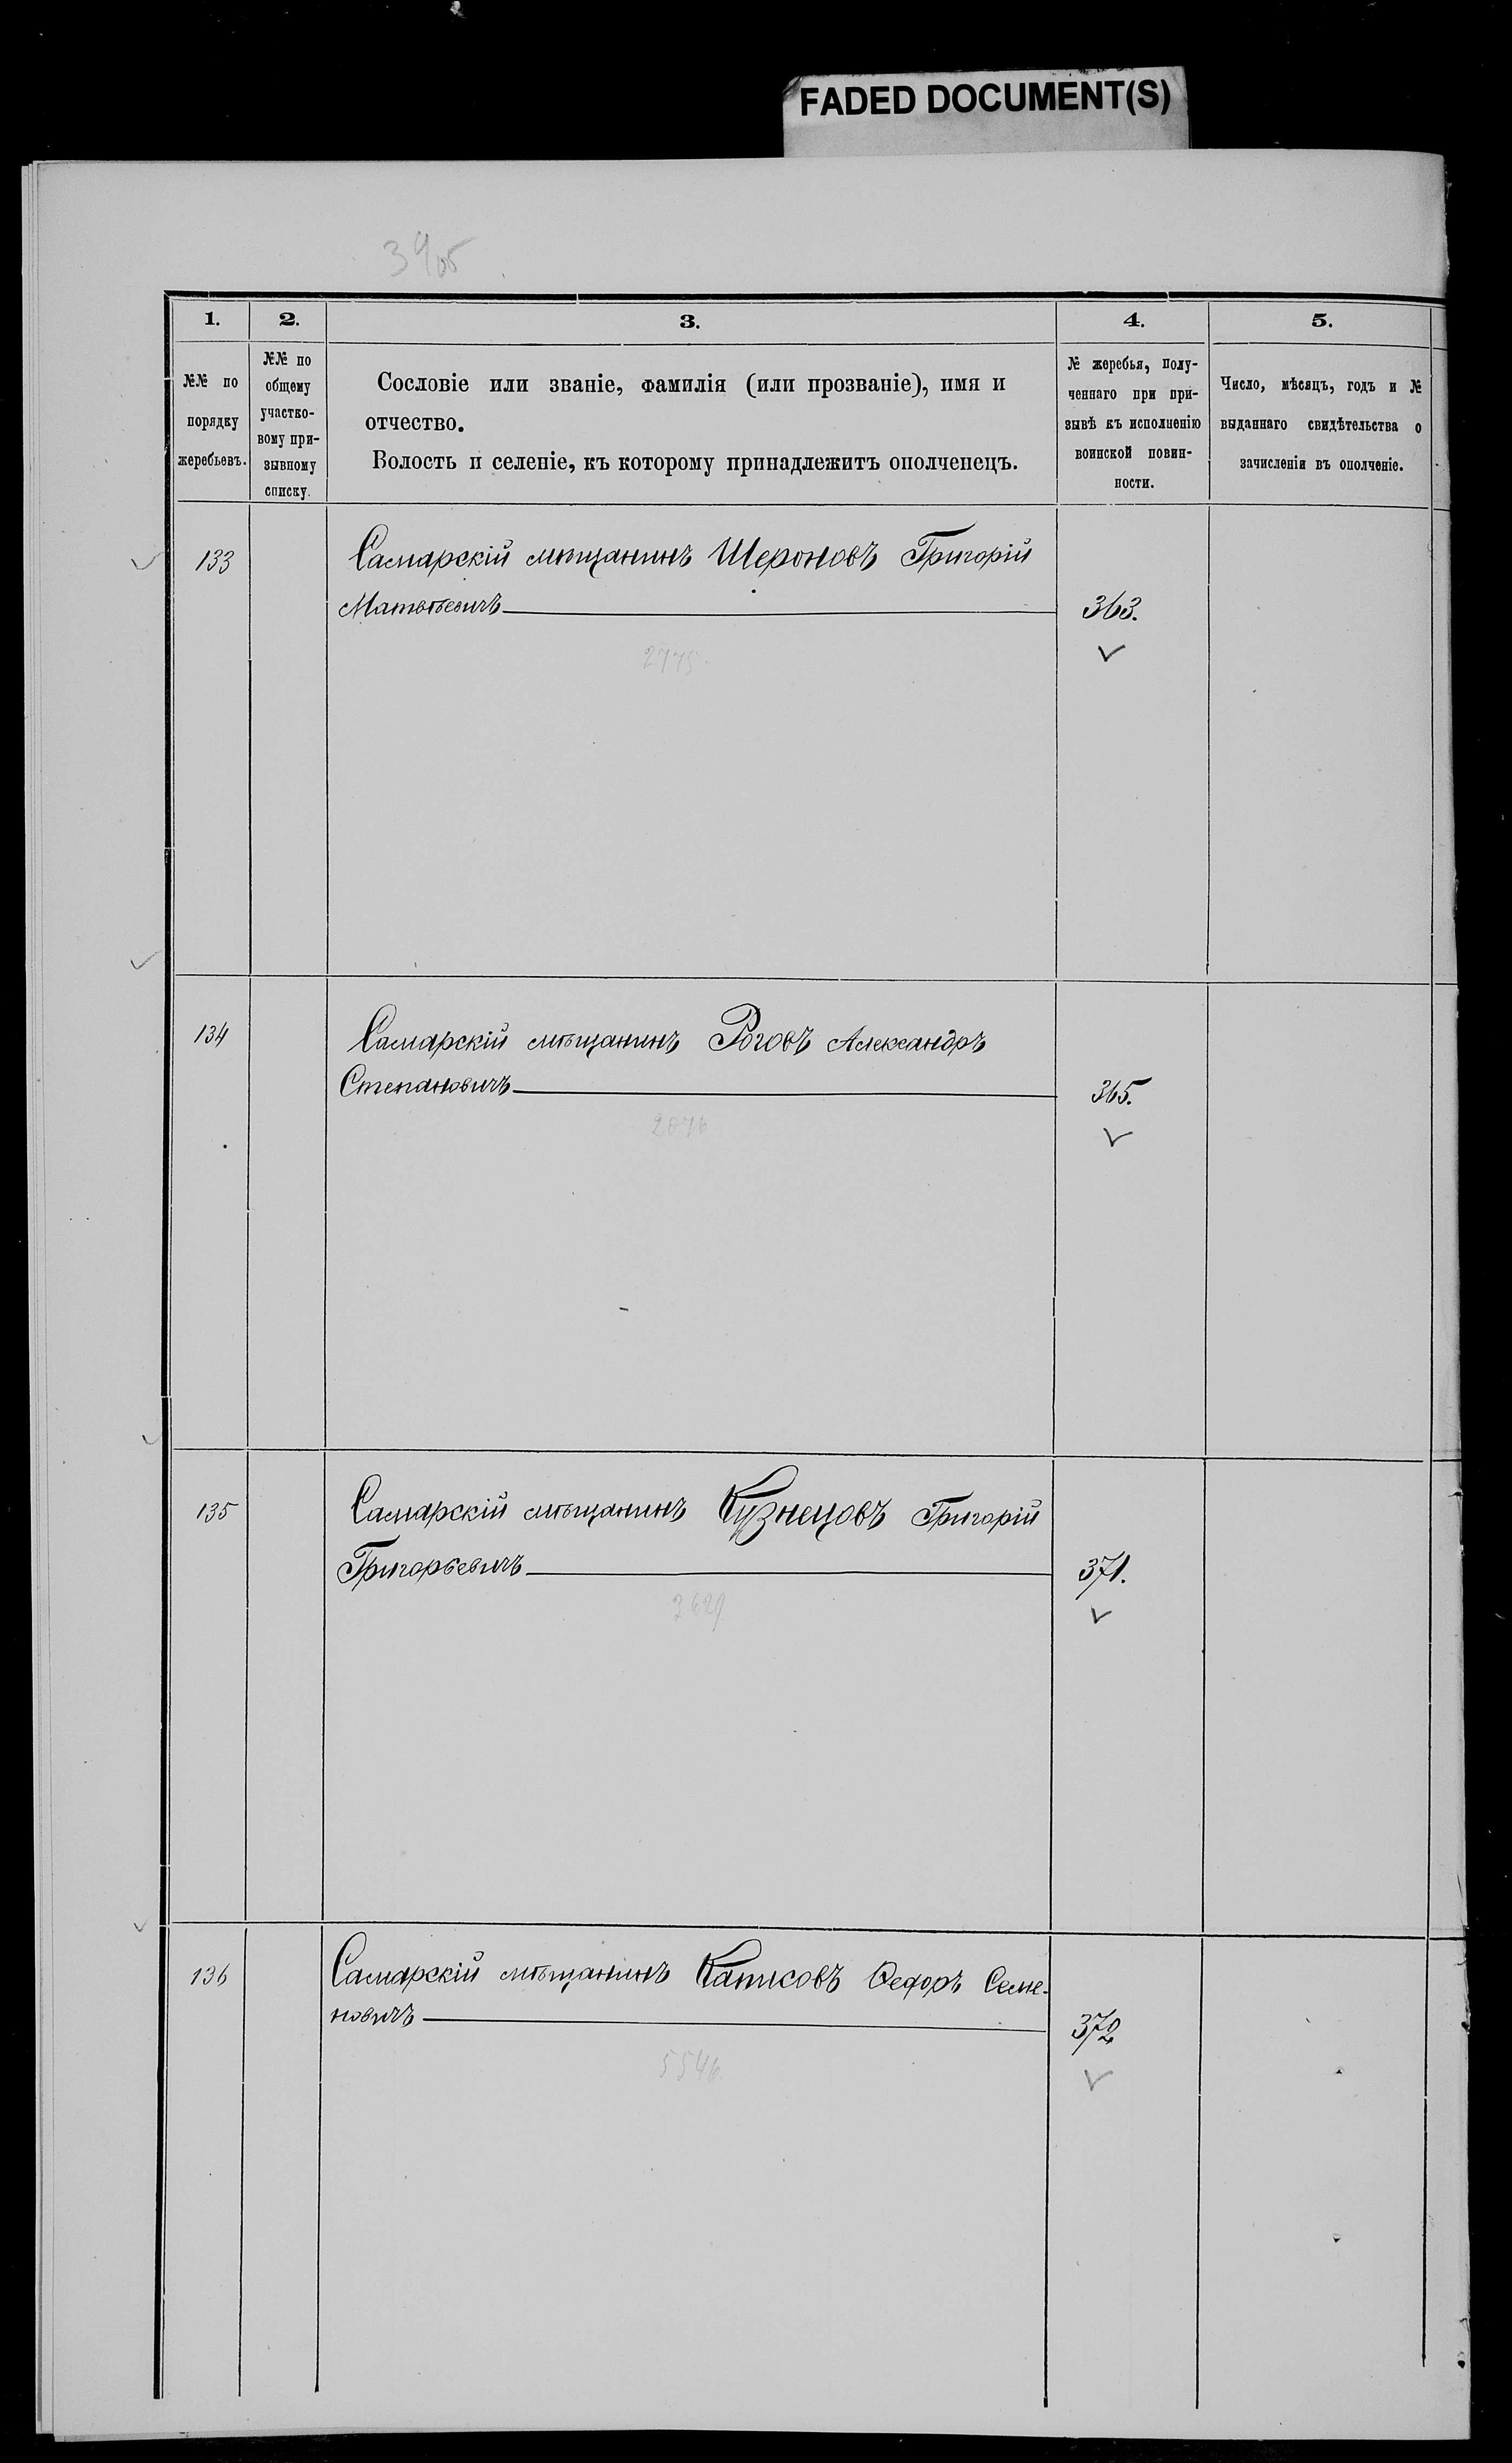 FADED DOCUMENT(S)
1.
2.
3.
4.
5.
№№ по
порядку
жеребьевъ.
№№ по
общему
участко-
вому при-
зывному
списку.
Сословіе или званіе, фамилія (или прозваніе), имя и
отчество.
Волость и селеніе, къ которому принадлежитъ ополченецъ.
№ жеребья, полу-
ченнаго при при-
зывѣ къ исполненію
воинской повин-
ности.
Число, мѣсяцъ, годъ и №
выданнаго свидѣтельства о
зачисленіи въ ополченіе.
133
Самарскій мѣщанинъ Шероновъ Григорій
Матвѣевичъ
363.
2775.
134
Самарскій мѣщанинъ Роговъ Александръ
Степановичъ
365.
2076
135
Самарскій мѣщанинъ Кузнецовъ Григорій
Григорьевичъ
371.
136
Самарскій мѣщанинъ Ѳедоръ Семе-
новичъ
372
5546.